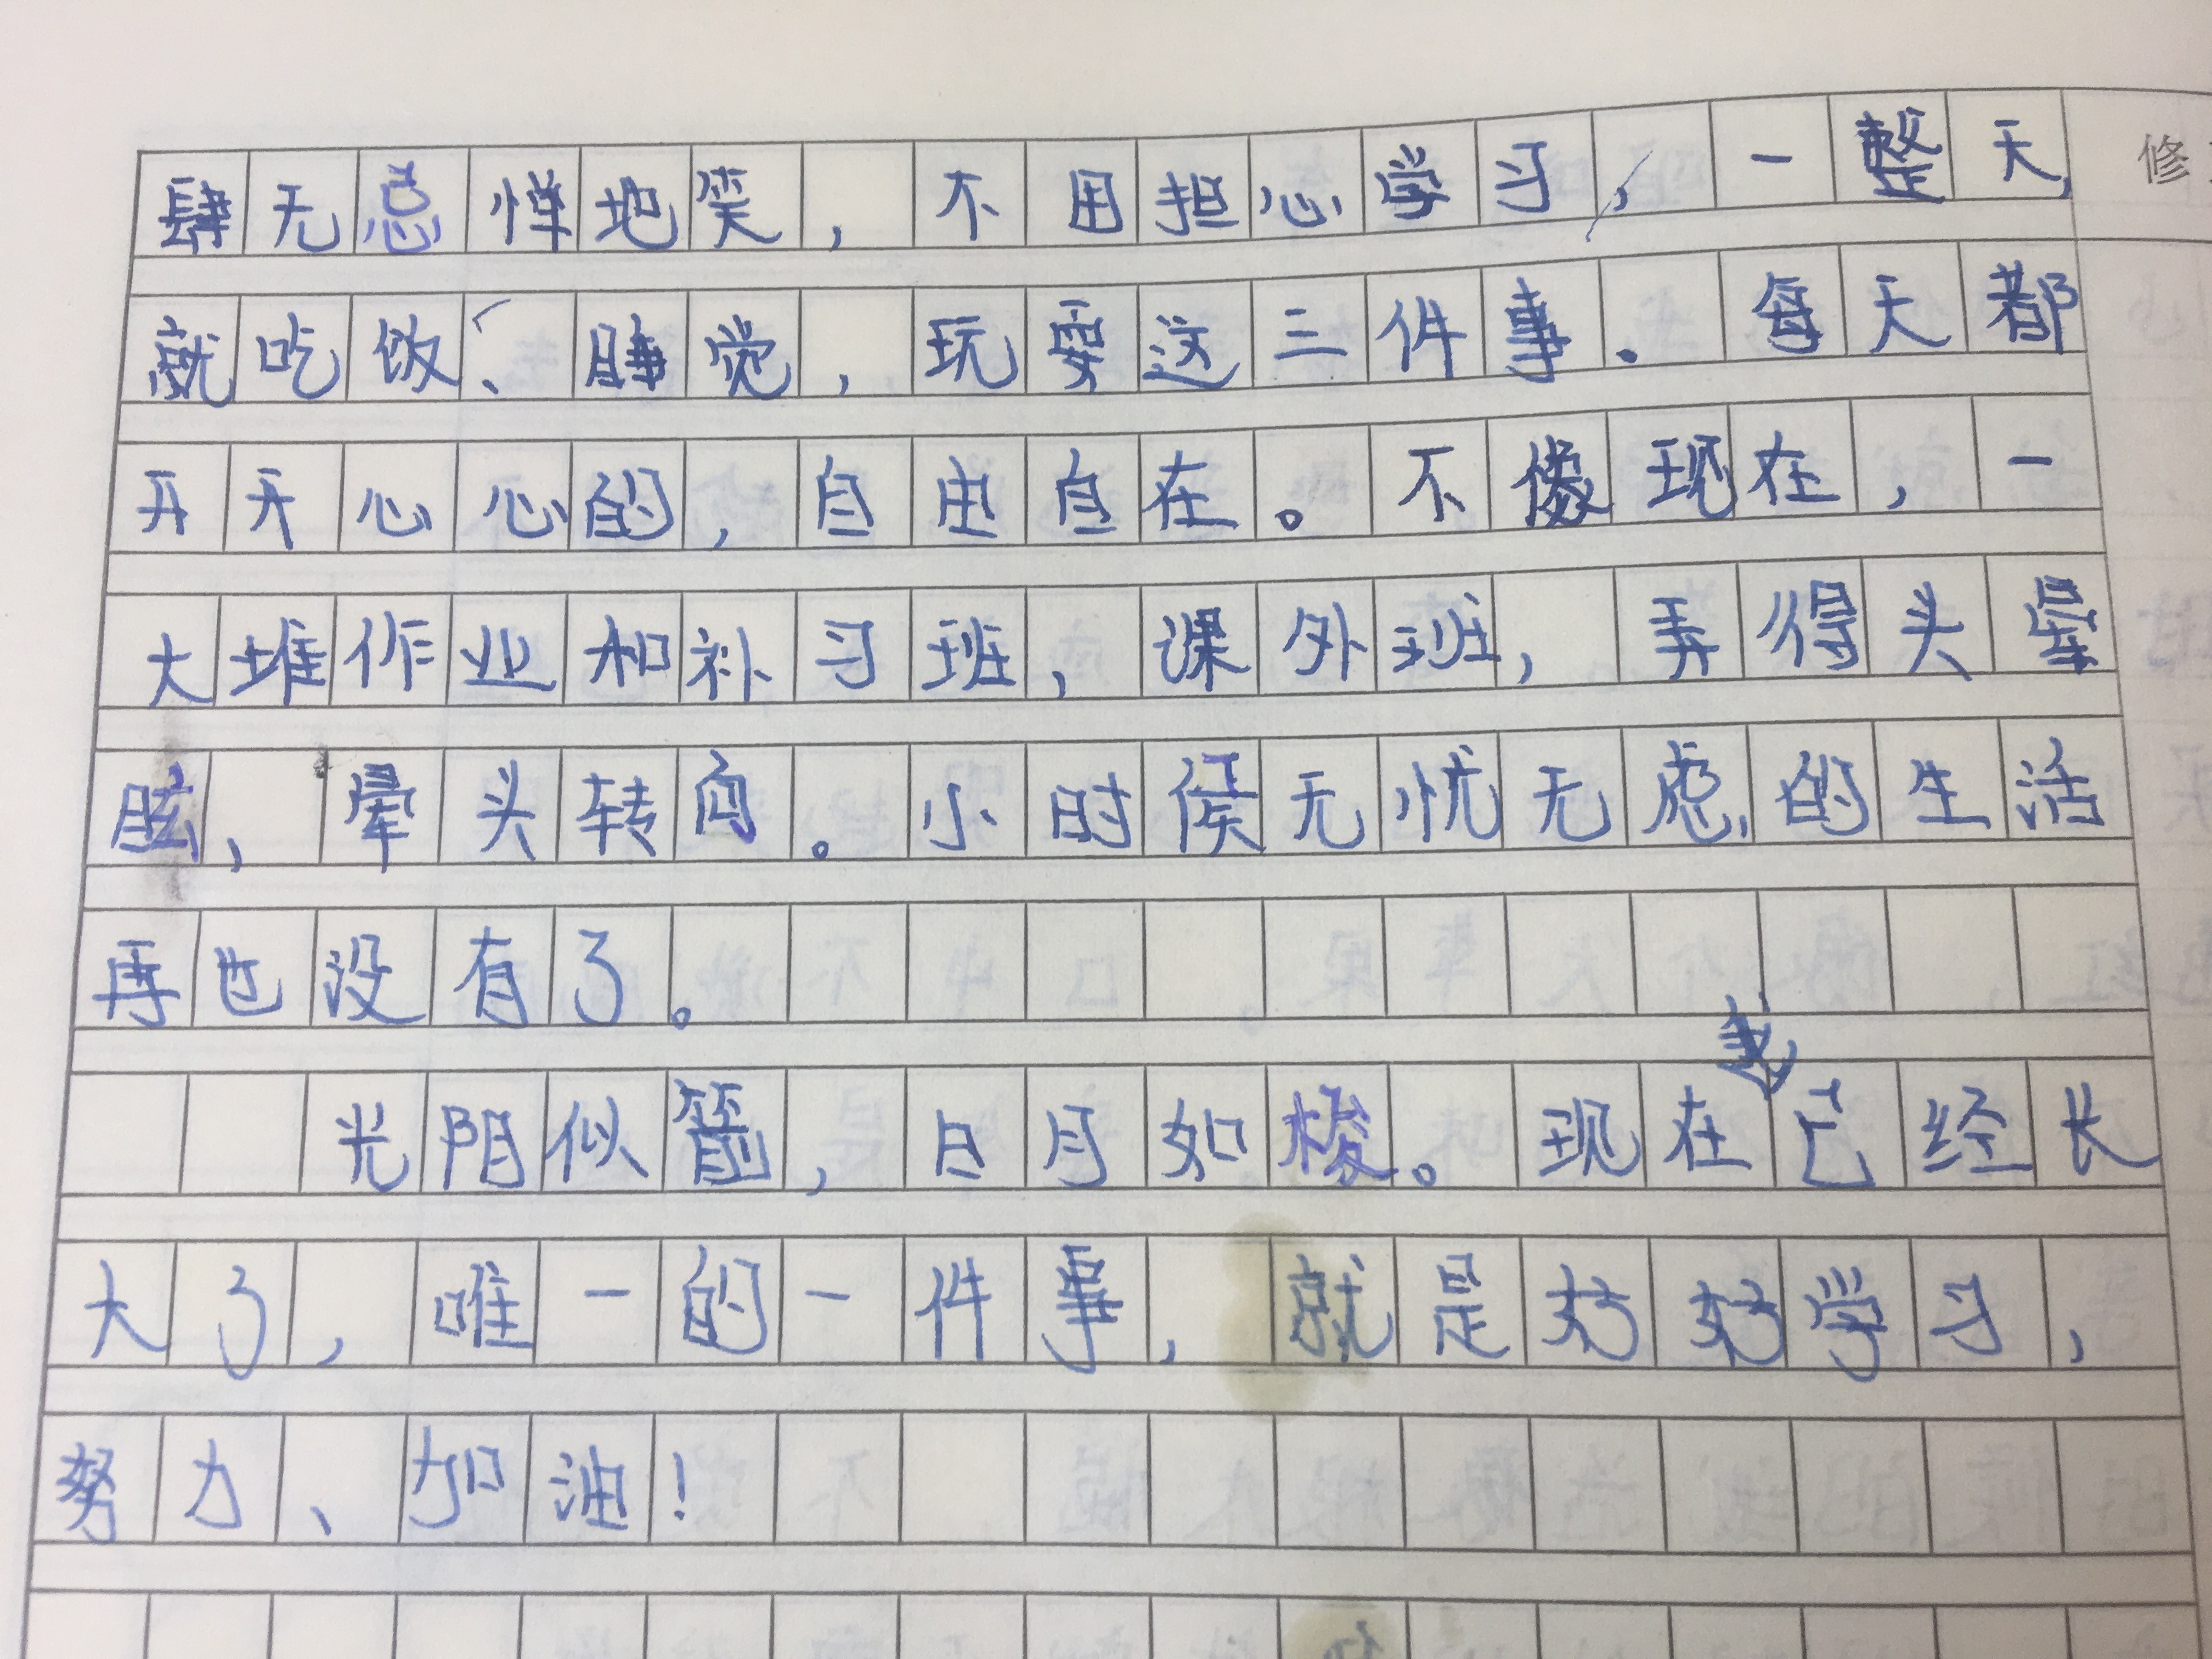 肆无忌惮地笑，不用担心学习，一整天，
就吃饭、睡觉，玩耍这三件事。每天都
开开心心的，自由自在。不像现在，一
大堆作业和补习班，课外班，弄得头晕
眩，晕头转向。小时候无忧无虑的生活
再也没有了。
光阳似箭，日月如梭。现在我已经长
大了，唯一的一件事，就是好好学习，
努力、加油！
修